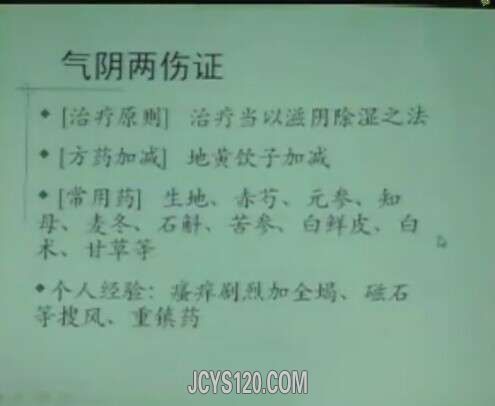 气阴两伤证
[治疗原则] 治疗当以滋阴除湿之法
[方药加减] 地黄饮子加减
[常用药] 生地、赤芍、元参、知
母、麦冬、石斛、苦参、白鲜皮、白
术、甘草等
个人经验：瘙痒剧烈加全蝎、磁石
等搜风、重镇药
JCYS120.COM